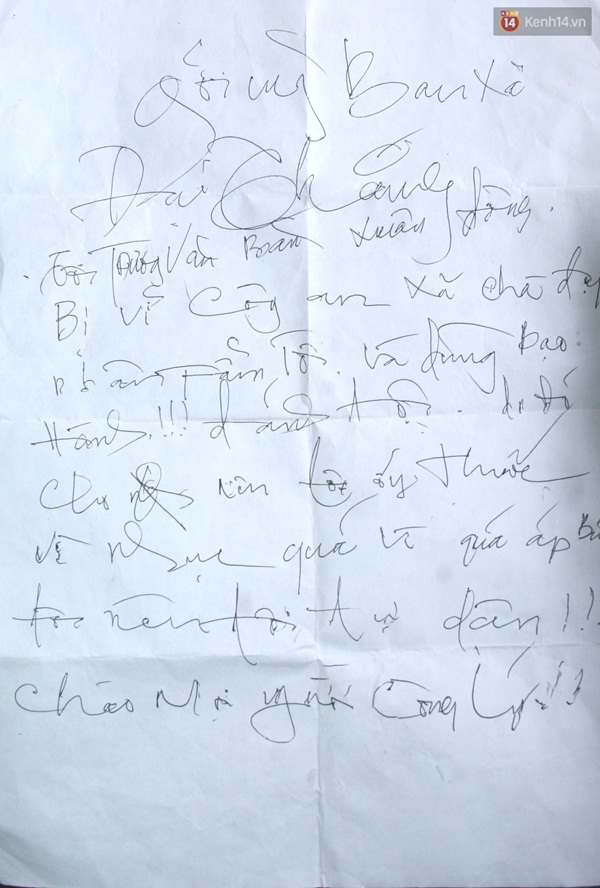 14 Kenh14.vn
Gởi Uỷ Ban Xã
Đại Thắng
Tôi Trương Văn xuân đông.
Bị Vì Công an xã chà đạp
nhân phẩm Tôi. và dùng bạo
Hành!!! đánh tôi. do đó
cho nên tôi ấy thuốc
về nhục quá vì quá áp
tôi nên tôi tự dân!!!
chào Mọi người Công Lý!!!